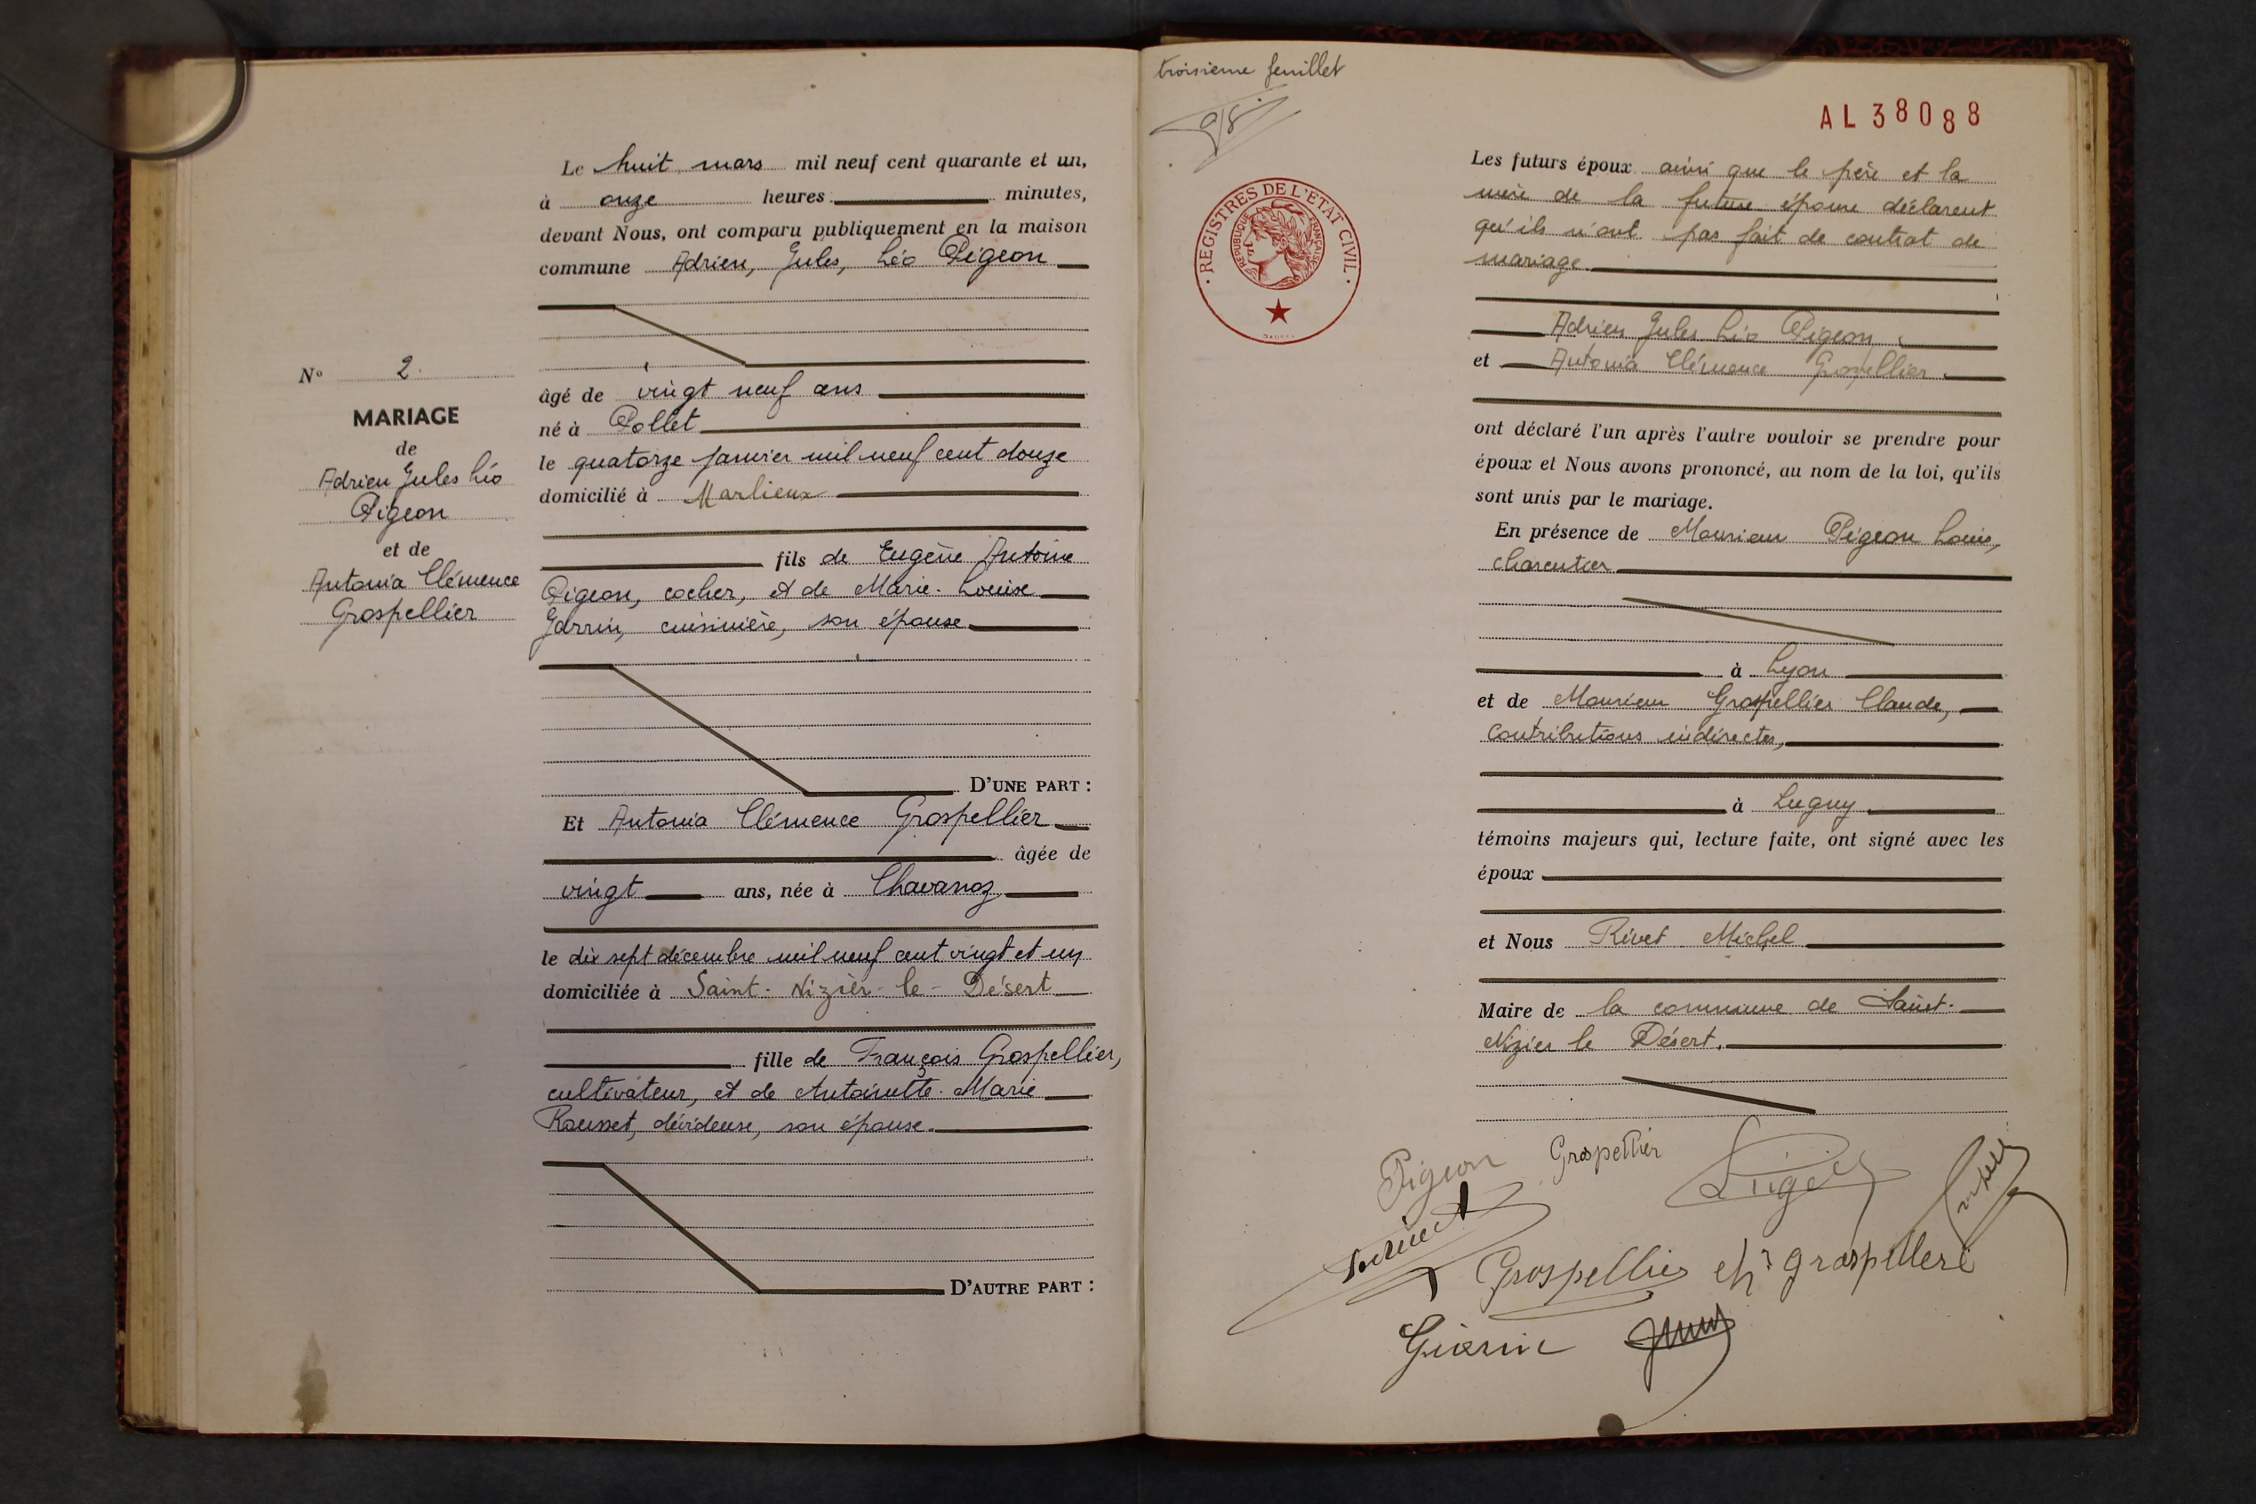 Le huit mars mil neuf cent quarante et un,
à onze heures minutes,
devant Nous, ont comparu publiquement en la maison
commune Adrien, Jules, Léo Pigeon
N° 2.
MARIAGE
de
Adrien Jules Léo
Pigeon
et de
Antonia Clémence
Grospellier
âgé de vingt neuf ans
né à Pollet
le quatorze janvier mil neuf cent douze
domicilié à Marlieux
fils de Eugène Antoine
Pigeon, cocher, et de Marie-Louise
Jarrin, cuisinière, son épouse
D'UNE PART :
Et Antonia Clémence Grospellier
âgée de
vingt ans, née à Chavanoz
le dix sept décembre mil neuf cent vingt et un
domiciliée à Saint-Nizier-le-Désert
fille de François Grospellier,
cultivateur, et de Antoinette-Marie
Rousset, dévideuse, son épouse.
D'AUTRE PART :
troisième feuillet
AL38088
REGISTRES DE L'ÉTAT CIVIL
RÉPUBLIQUE FRANÇAISE
Les futurs époux ainsi que le père et la
mère de la future épouse déclarent
qu'ils n'ont pas fait de contrat de
mariage.
Adrien Jules Léo Pigeon
et Antonia Clémence Grospellier.
ont déclaré l'un après l'autre vouloir se prendre pour
époux et Nous avons prononcé, au nom de la loi, qu'ils
sont unis par le mariage.
En présence de Monsieur Pigeon Louis,
charcutier
à Lyon
et de Monsieur Grospellier Claude,
Contributions indirectes,
à Lugny
témoins majeurs qui, lecture faite, ont signé avec les
époux
et Nous Rivet Michel
Maire de la commune de Saint-
Nizier le Désert.
Pigeon Grospellier
Grospellier